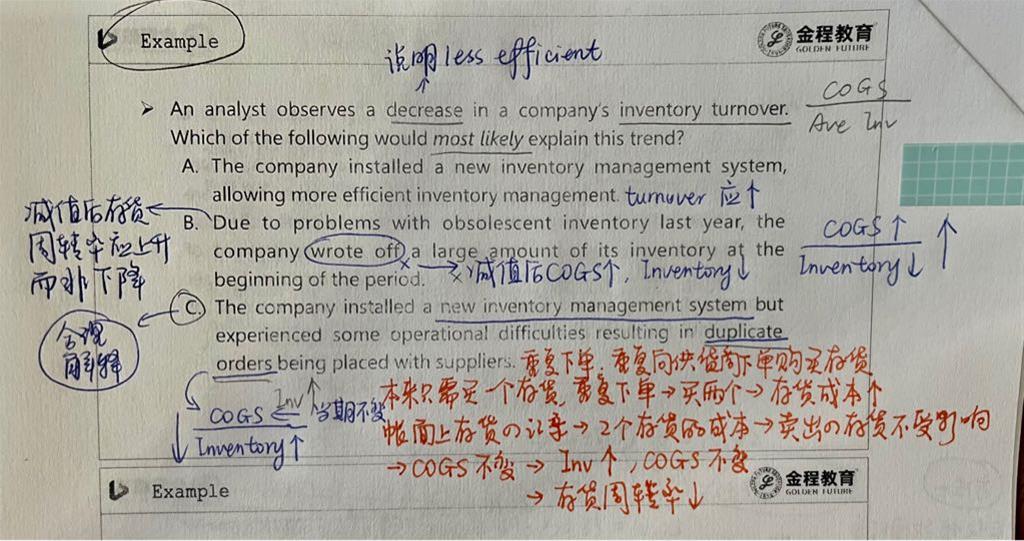 Example
金程教育
GOLDEN FUTURE
说明 less efficient
↑
➤ An analyst observes a decrease in a company's inventory turnover.
COGS
Ave Inv
Which of the following would most likely explain this trend?
A. The company installed a new inventory management system,
allowing more efficient inventory management. turnover 应↑
减值后存货
周转率应上升
而非下降
B. Due to problems with obsolescent inventory last year, the
company wrote off a large amount of its inventory at the
beginning of the period. 减值后COGS↑, Inventory↓
COGS↑
Inventory↓
↑
合理
解释
C. The company installed a new inventory management system but
experienced some operational difficulties resulting in duplicate
orders being placed with suppliers. 重复下单, 重复向供货商下单购买存货
本来只需买一个存货, 重复下单→买两个→存货成本↑
Inv↑
COGS ← 当期不变
↓ Inventory↑
帐面上存货の记录→2个存货的成本→卖出の存货不受影响
→COGS不变→Inv↑, COGS不变
→存货周转率↓
Example
金程教育
GOLDEN FUTURE